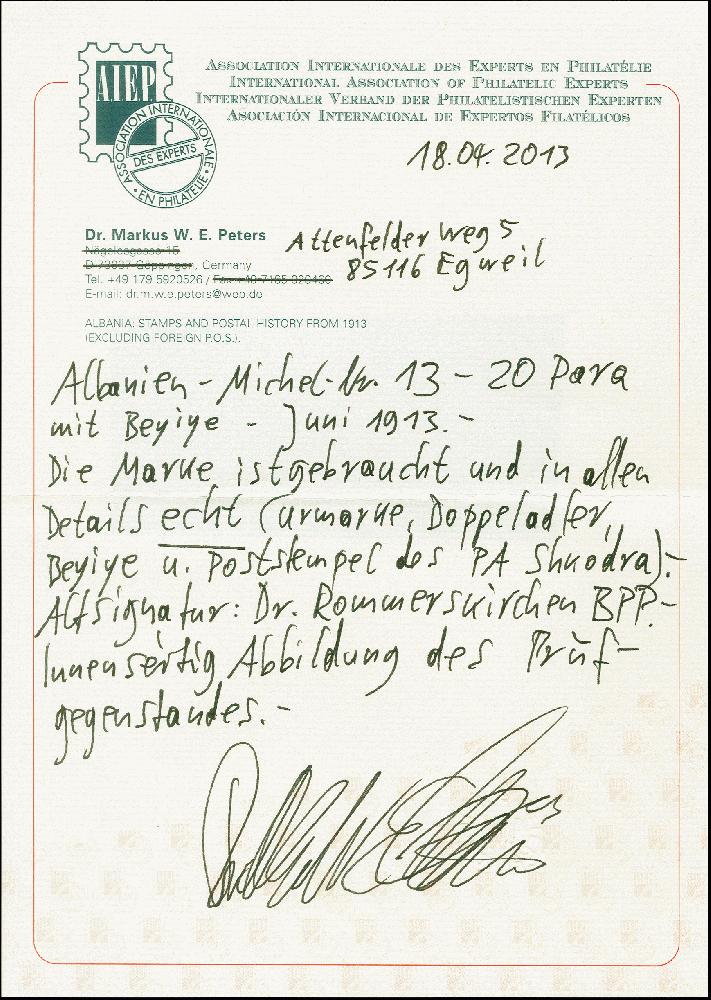 AIEP
ASSOCIATION INTERNATIONALE
DES EXPERTS
EN PHILATÉLIE
ASSOCIATION INTERNATIONALE DES EXPERTS EN PHILATÉLIE
INTERNATIONAL ASSOCIATION OF PHILATELIC EXPERTS
INTERNATIONALER VERBAND DER PHILATELISTISCHEN EXPERTEN
ASOCIACIÓN INTERNACIONAL DE EXPERTOS FILATÉLICOS
18.04.2013
Dr. Markus W. E. Peters
Nägelesgasse 15
D-73037 Göppingen, Germany
Attenfelder Weg 5
85116 Egweil
Tel. +49 179 5920526 /
E-mail: dr.m.w.e.peters@web.de
ALBANIA: STAMPS AND POSTAL HISTORY FROM 1913
(EXCLUDING FOREIGN P.O.S.).
Albanien - Michel-Nr. 13 - 20 Para
mit Beyiye - Juni 1913.-
Die Marke ist gebraucht und in allen
Details echt (Urmarke, Doppeladler,
Beyiye u. Poststempel des PA Shkodra).-
Altsignatur: Dr. Rommerskirchen BPP.-
Innenseitig Abbildung des Prüf-
gegenstandes.-